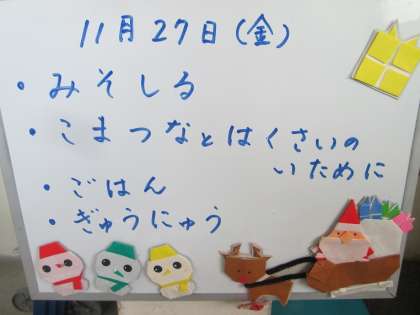 11月27日(金)
・みそしる
・こまつなとはくさいの
いために
・ごはん
・ぎゅうにゅう